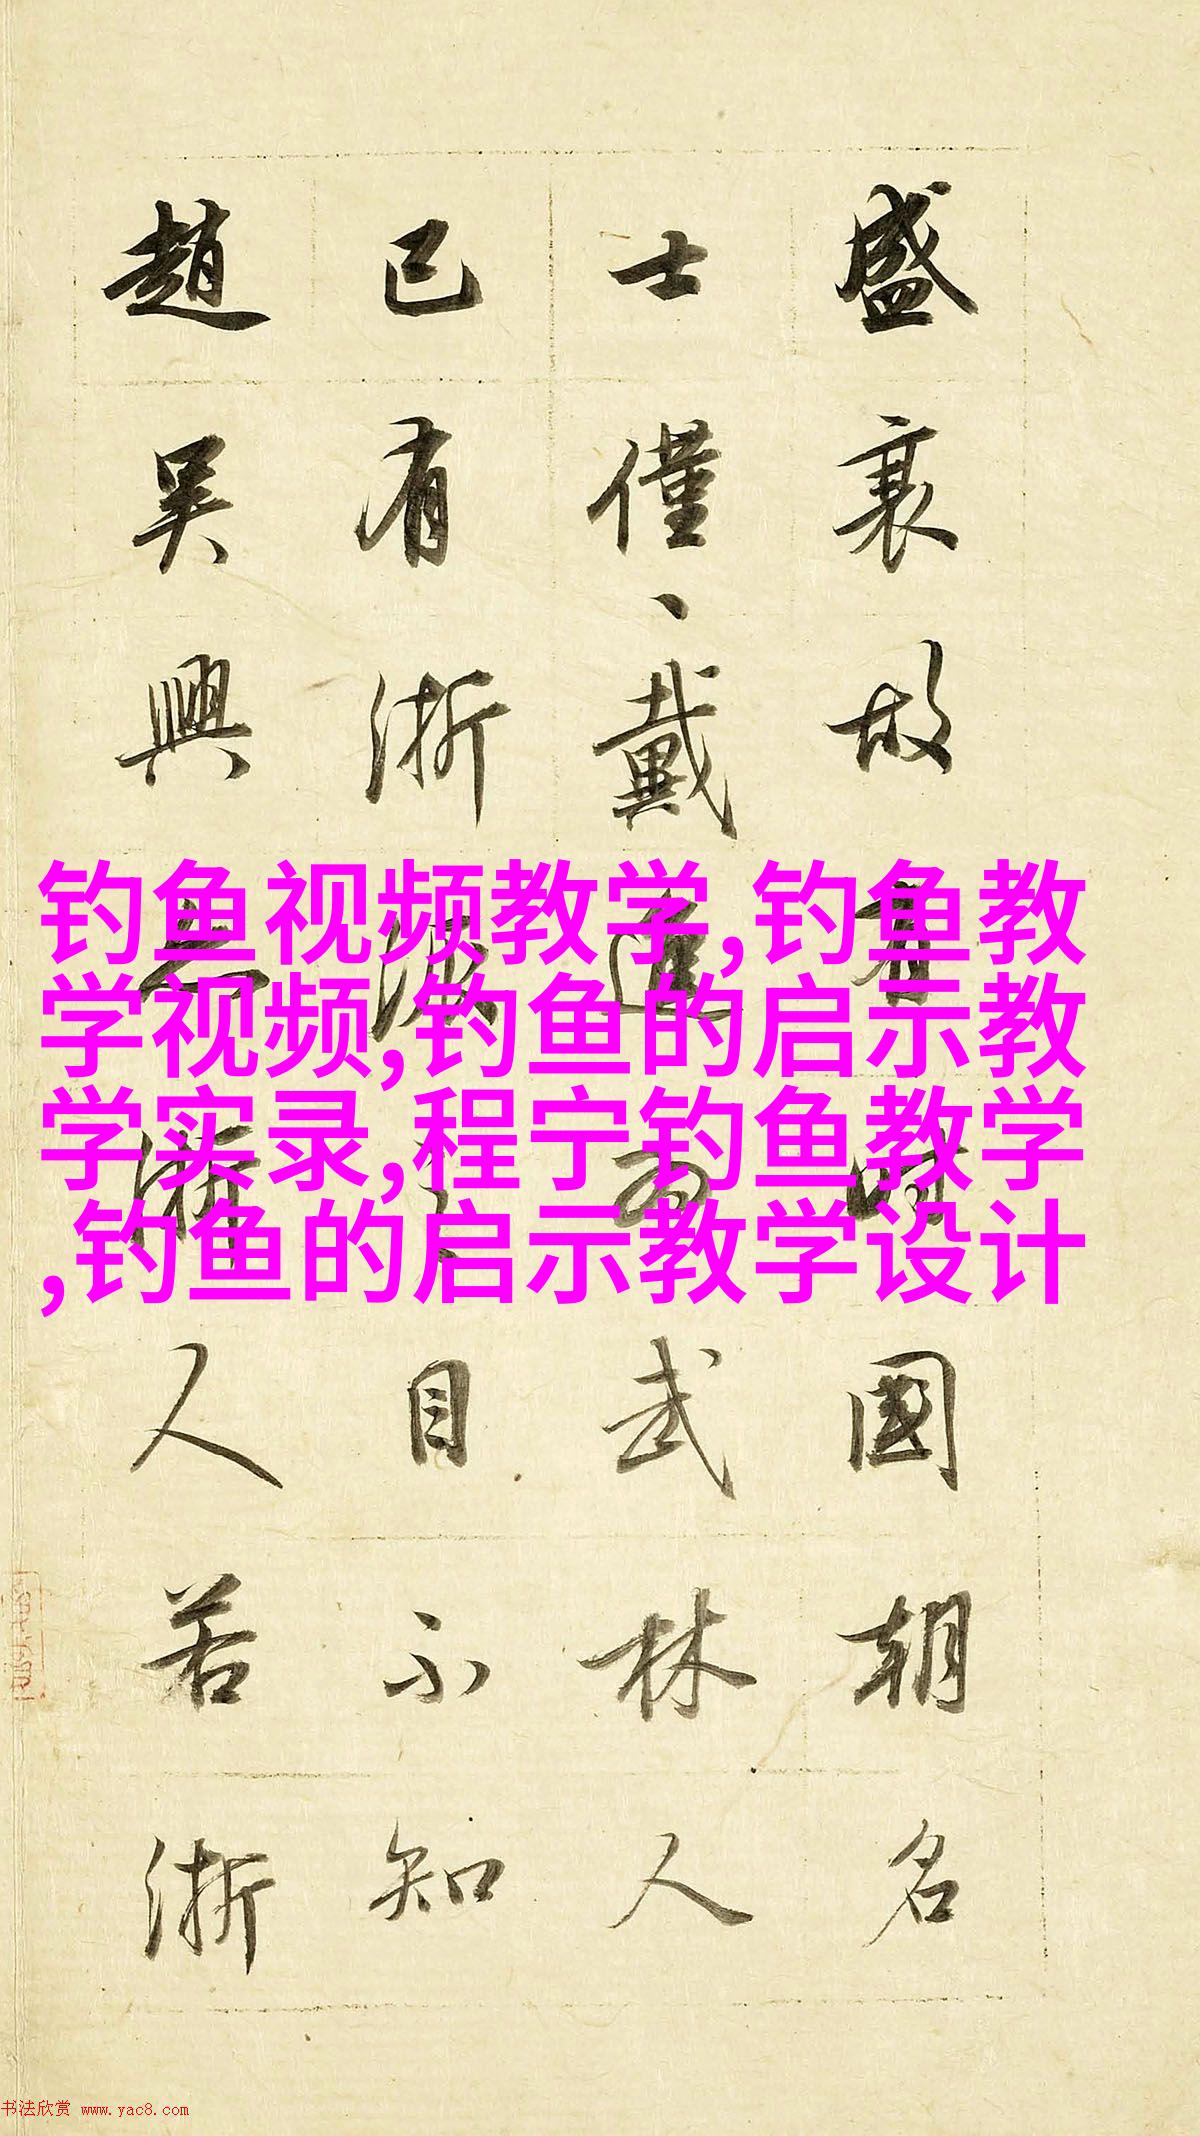 盛衰故有時國朝名
士僅、戴進為武林人
已有浙派之目不知
趙吳興亦浙人若浙
钓鱼视频教学,钓鱼教
学视频,钓鱼的启示教
学实录,程宁钓鱼教学
,钓鱼的启示教学设计
书法欣赏 www.yac8.com